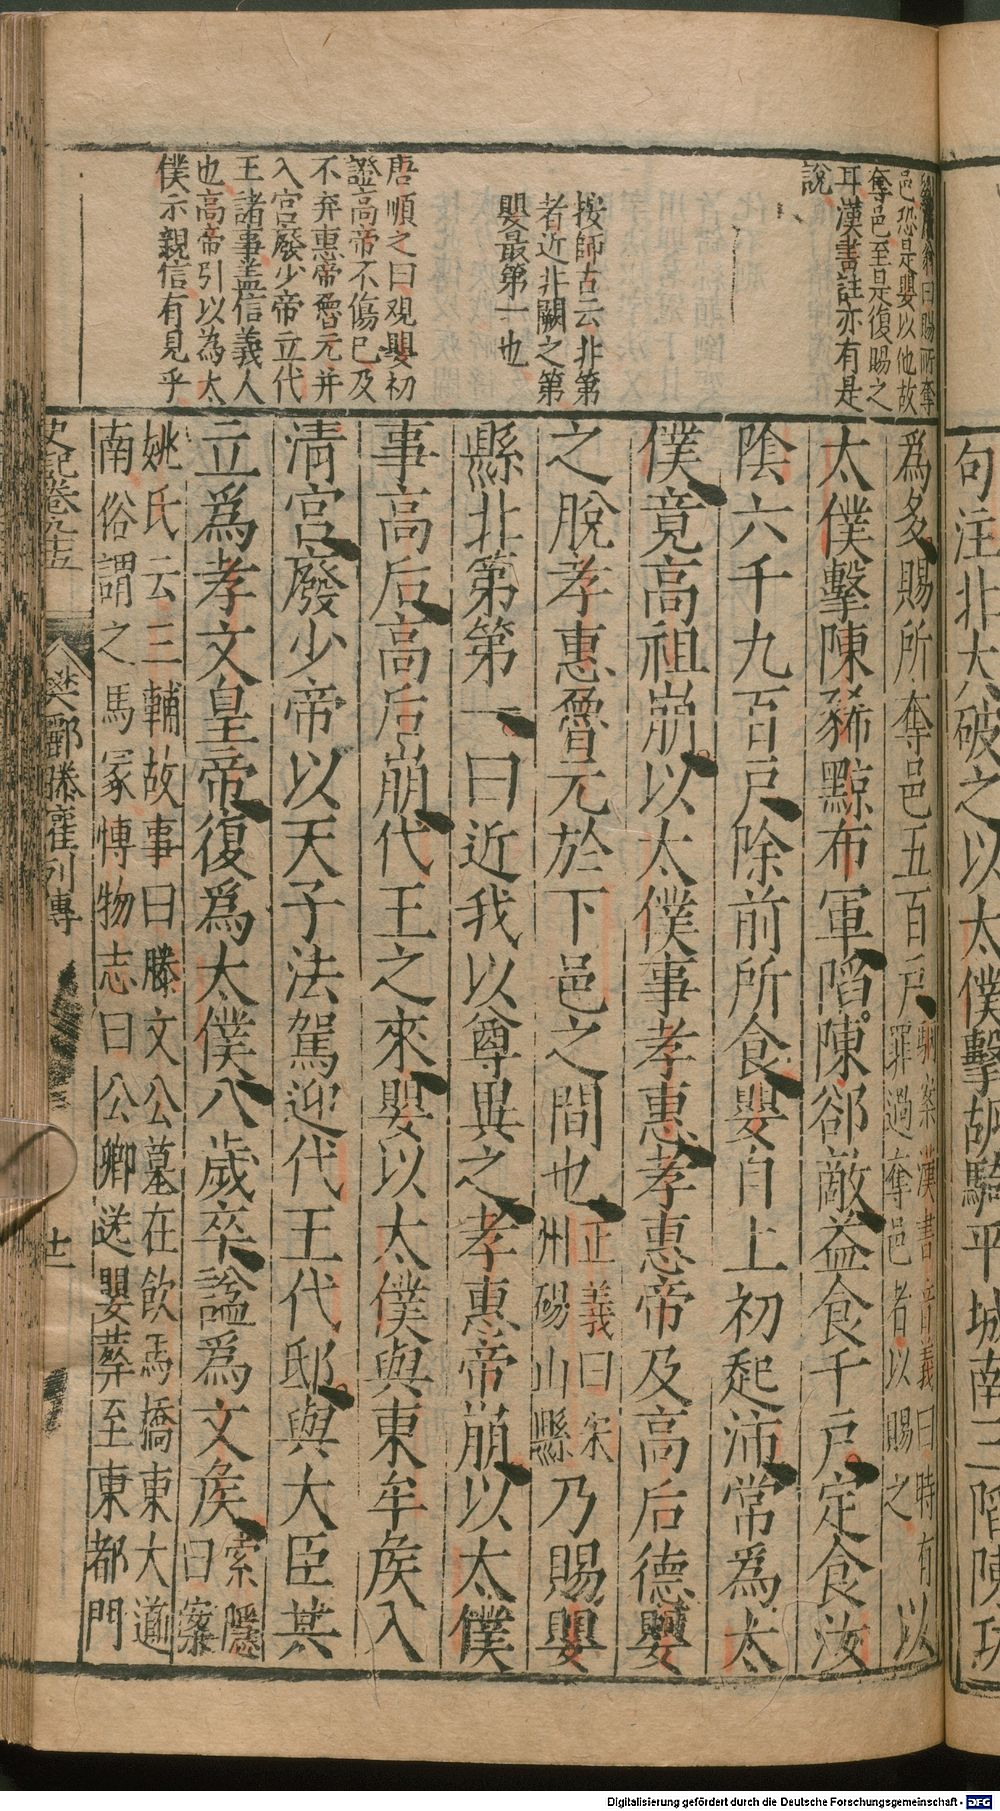 句注北大破之以太僕擊胡騎平城南三陷陳功
曰賜所奪
邑恐是嬰以他故
奪邑至是復賜之
耳漢書註亦有是
說
按師古云北第
者近北闕之第
嬰最第一也
唐順之曰观嬰初
證高帝不傷已及
不弃惠帝魯元并
入宮廢少帝立代
王諸事盖信義人
也高帝引以為太
僕示親信有見乎
爲多賜所奪邑五百戶駰案漢書音義曰時有罪過奪邑者以賜之以
太僕擊陳豨黥布軍陷陳郤敵益食千戶定食汝
陰六千九百戶除前所食嬰自上初起沛常爲太
僕竟高祖崩以太僕事孝惠孝惠帝及高后德嬰
之脫孝惠魯元於下邑之間也正義曰宋州碭山縣乃賜嬰
縣北第第一曰近我以尊異之孝惠帝崩以太僕
事高后高后崩代王之來嬰以太僕與東牟矦入
清宮廢少帝以天子法駕迎代王代邸與大臣共
立爲孝文皇帝復爲太僕八歲卒諡爲文矦索隱曰案
姚氏云三輔故事曰滕文公墓在飲馬橋東大道
南俗謂之馬冢博物志曰公卿送嬰葬至東都門
史記卷九十五
樊酈滕灌列傳
廿二
Digitalisierung gefördert durch die Deutsche Forschungsgemeinschaft - DFG